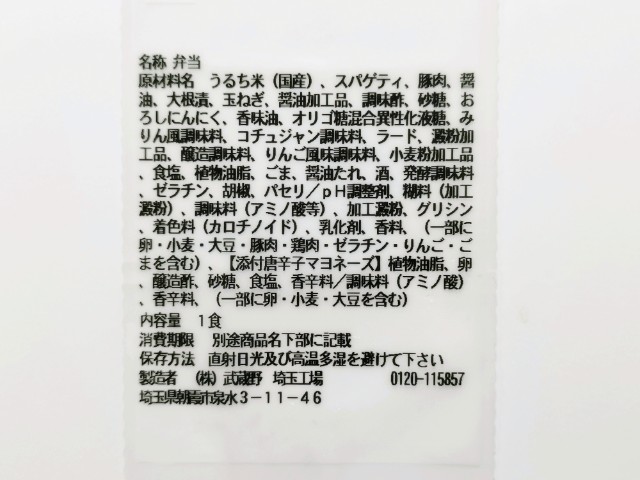 名称 弁当
原材料名 うるち米（国産）、スパゲティ、豚肉、醤
油、大根漬、玉ねぎ、醤油加工品、調味酢、砂糖、お
ろしにんにく、香味油、オリゴ糖混合異性化液糖、み
りん風調味料、コチュジャン調味料、ラード、澱粉加
工品、醸造調味料、りんご風味調味料、小麦粉加工品
、食塩、植物油脂、ごま、醤油たれ、酒、発酵調味料
、ゼラチン、胡椒、パセリ／ｐＨ調整剤、糊料（加工
澱粉）、調味料（アミノ酸等）、加工澱粉、グリシン
、着色料（カロチノイド）、乳化剤、香料、（一部に
卵・小麦・大豆・豚肉・鶏肉・ゼラチン・りんご・ご
まを含む）、【添付唐辛子マヨネーズ】植物油脂、卵
、醸造酢、砂糖、食塩、香辛料／調味料（アミノ酸）
、香辛料、（一部に卵・小麦・大豆を含む）
内容量 １食
消費期限 別途商品名下部に記載
保存方法 直射日光及び高温多湿を避けて下さい
製造者 （株）武蔵野 埼玉工場 0120-115857
埼玉県朝霞市泉水３−１１−４６